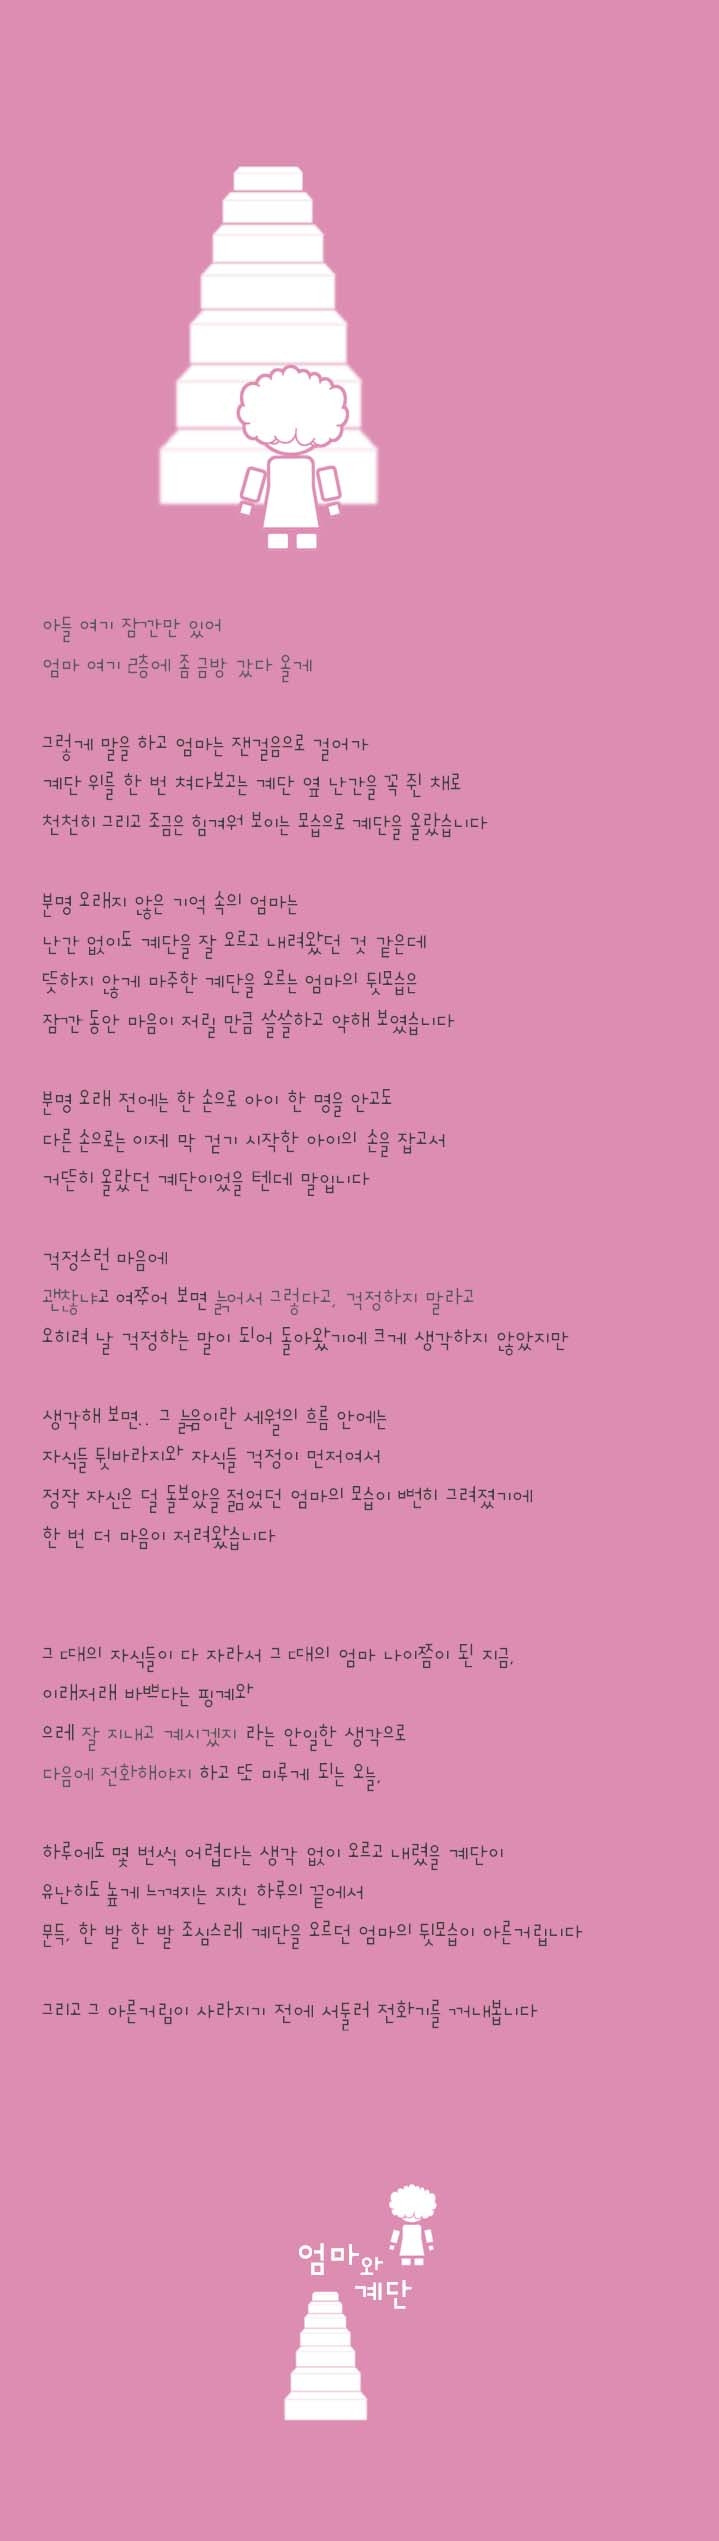 아들 여기 잠깐만 있어
엄마 여기 2층에 좀 금방 갔다 올게
그렇게 말을 하고 엄마는 잰걸음으로 걸어가
계단 위를 한 번 쳐다보고는 계단 옆 난간을 꼭 쥔 채로
천천히 그리고 조금은 힘겨워 보이는 모습으로 계단을 올랐습니다
분명 오래지 않은 기억 속의 엄마는
난간 없이도 계단을 잘 오르고 내려왔던 것 같은데
뜻하지 않게 마주한 계단을 오르는 엄마의 뒷모습은
잠깐 동안 마음이 저릴 만큼 쓸쓸하고 약해 보였습니다
분명 오래 전에는 한 손으로 아이 한 명을 안고도
다른 손으로는 이제 막 걷기 시작한 아이의 손을 잡고서
거뜬히 올랐던 계단이었을 텐데 말입니다
걱정스런 마음에
괜찮냐고 여쭈어 보면 늙어서 그렇다고, 걱정하지 말라고
오히려 날 걱정하는 말이 되어 돌아왔기에 크게 생각하지 않았지만
생각해 보면.. 그 늙음이란 세월의 흐름 안에는
자식들 뒷바라지와 자식들 걱정이 먼저여서
정작 자신은 덜 돌보았을 젊었던 엄마의 모습이 뻔히 그려졌기에
한 번 더 마음이 저려왔습니다
그 때의 자식들이 다 자라서 그 때의 엄마 나이쯤이 된 지금,
이래저래 바쁘다는 핑계와
으레 잘 지내고 계시겠지 라는 안일한 생각으로
다음에 전화해야지 하고 또 미루게 되는 오늘,
하루에도 몇 번씩 어렵다는 생각 없이 오르고 내렸을 계단이
유난히도 높게 느껴지는 지친 하루의 끝에서
문득, 한 발 한 발 조심스레 계단을 오르던 엄마의 뒷모습이 아른거립니다
그리고 그 아른거림이 사라지기 전에 서둘러 전화기를 꺼내봅니다
엄마와
계단